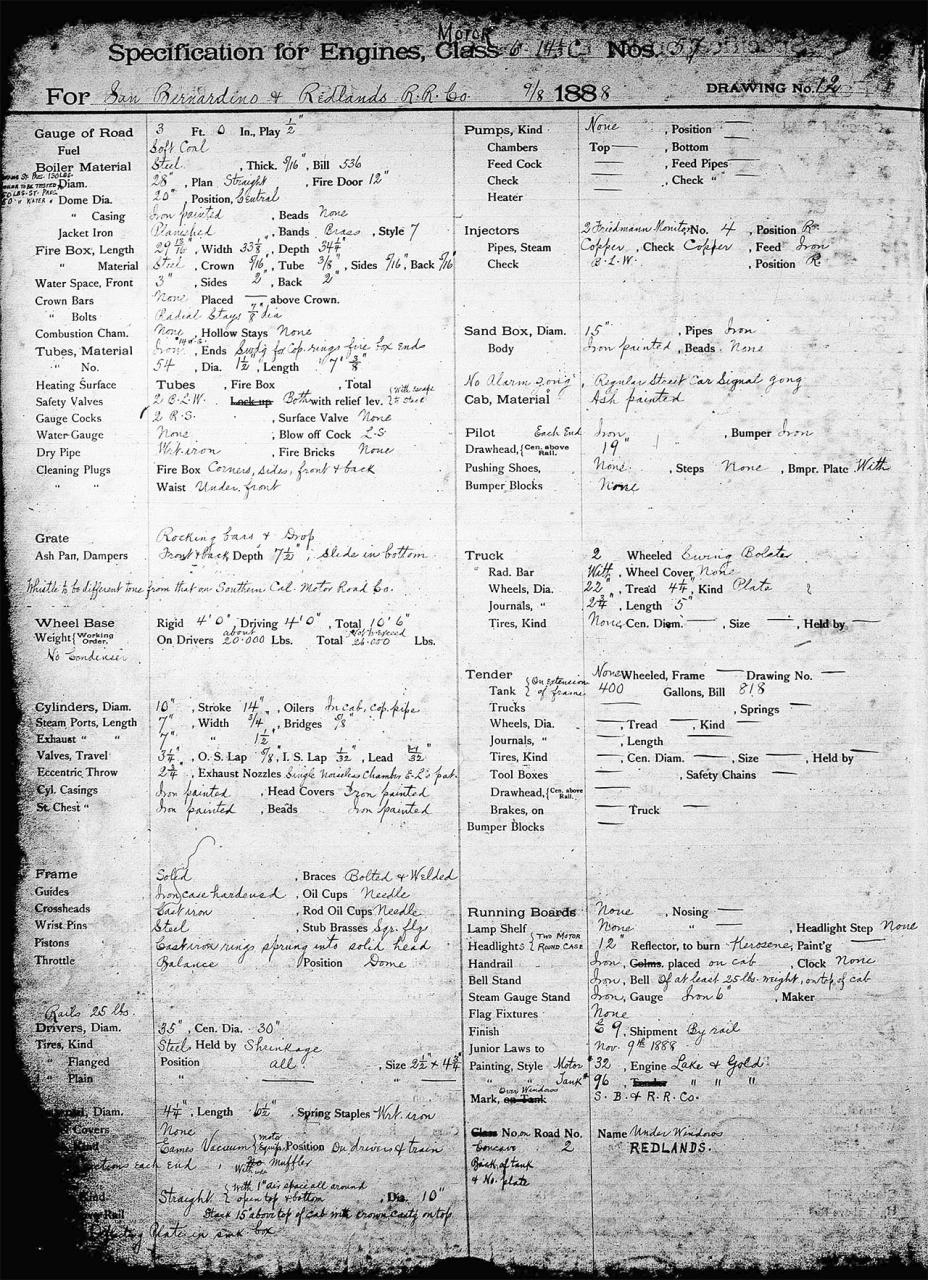 Specification for Engines, Class Motor 6-14¼ C Nos. 57
For San Bernardino & Redlands R.R. Co. 9/8 1888 DRAWING No. 12
Gauge of Road 3 Ft. 0 In., Play ½"
Fuel Soft Coal
Boiler Material Steel , Thick. 5/16" , Bill 536
Diam. 28" , Plan Straight , Fire Door 12"
Dome Dia. 20" , Position, Central
" Casing Iron painted , Beads None
Jacket Iron Planished , Bands Brass , Style 7
Fire Box, Length 29 13/16" , Width 33⅛" , Depth 34¼"
" Material Steel , Crown 5/16" , Tube 3/8" , Sides 5/16" , Back 5/16"
Water Space, Front 3" , Sides 2" , Back 2"
Crown Bars None Placed — above Crown.
" Bolts Radial Stays 7/8" dia
Combustion Cham. None , Hollow Stays None
Tubes, Material Iron , Ends Swg'd for Cop. rings fire box ends
" No. 54 , Dia. 1½" , Length 7' 3/8"
Heating Surface Tubes , Fire Box , Total
Safety Valves 2 B.L.W. Lock-up Both with relief lev.
Gauge Cocks 2 R.S. , Surface Valve None
Water Gauge None , Blow off Cock L.S.
Dry Pipe Wrt. iron , Fire Bricks None
Cleaning Plugs Fire Box Corners, sides, front & back
" " Waist Under front
Grate Rocking bars & Drop
Ash Pan, Dampers Front & back Depth 7½" , Slide in bottom.
Whistle to be different tone from that on Southern Cal. Motor Road Co.
Wheel Base Rigid 4' 0" , Driving 4' 0" , Total 10' 6"
Weight { Working Order. On Drivers about 20.000 Lbs. Total Not to exceed 26.000 Lbs.
No Condenser
Cylinders, Diam. 10" , Stroke 14" , Oilers In cab, cop. pipe
Steam Ports, Length 7" , Width 3/4" , Bridges 5/8"
Exhaust " " 7" " 1½"
Valves, Travel 3¼" , O. S. Lap 5/8" , I. S. Lap 1/32" , Lead 1/32"
Eccentric Throw 2¾" , Exhaust Nozzles Single Noiseless Chamber E-L's pat.
Cyl. Casings Iron painted , Head Covers Iron painted
St. Chest " Iron painted , Beads Iron painted
Frame Solid , Braces Bolted & Welded
Guides Iron case hardened , Oil Cups Needle
Crossheads Cast iron , Rod Oil Cups Needle
Wrist Pins Steel , Stub Brasses Sqr. flg
Pistons Cast iron rings sprung into solid head
Throttle Balance Position Dome
Rails 25 lbs.
Drivers, Diam. 35" , Cen. Dia. 30"
Tires, Kind Steel Held by Shrinkage
" Flanged Position all , Size 2½" & 4¾"
" Plain " — " —
Diam. 4¼" , Length 6½" Spring Staples Wrt. iron
Covers None
Kind Eames Vacuum { Motor Equip. Position On drivers & train
each end , With Muffler
Kind Straight { With 1" air space all around open top & bottom , Dia. 10"
Rail Stack 15" above top of cab with crown casting on top
Plate in smk box
Pumps, Kind None , Position —
Chambers Top — , Bottom —
Feed Cock — , Feed Pipes —
Check — , Check " —
Heater
Injectors 2 Friedmann Monitor No. 4 , Position R.
Pipes, Steam Copper , Check Copper , Feed Iron
Check B.L.W. , Position R.
Sand Box, Diam. 15" , Pipes Iron
Body Iron painted , Beads None
No Alarm Gong , Regular Street Car Signal gong
Cab, Material Ash painted
Pilot Each End Iron , Bumper Iron
Drawhead, { Cen. above Rail. 19"
Pushing Shoes, None , Steps None , Bmpr. Plate With
Bumper Blocks None
Truck 2 Wheeled Swing Bolster
" Rad. Bar With , Wheel Cover None
Wheels, Dia. 22" , Tread 4¼" , Kind Plate
Journals, " 2¾" , Length 5"
Tires, Kind None, Cen. Diam. — , Size — , Held by —
Tender None Wheeled, Frame — Drawing No. —
Tank { On Extension of frame 400 Gallons, Bill 818
Trucks — , Springs —
Wheels, Dia. — , Tread — , Kind —
Journals, " — , Length —
Tires, Kind — , Cen. Diam. — , Size — , Held by —
Tool Boxes — , Safety Chains —
Drawhead, { Cen. above Rail. —
Brakes, on — Truck —
Bumper Blocks —
Running Boards None , Nosing —
Lamp Shelf None " — , Headlight Step None
Headlights { TWO MOTOR ROUND CASE 12" Reflector, to burn Kerosene, Paint'g —
Handrail Iron , Colms. placed on cab , Clock None
Bell Stand Iron , Bell Of at least 25 lbs. weight, on top of cab
Steam Gauge Stand Iron, Gauge Iron 6" , Maker
Flag Fixtures None
Finish E 9. Shipment By rail
Junior Laws to Nov. 9th 1888
Painting, Style Motor #32 , Engine Lake & Gold
" " Tank #96 , Tender " " "
Mark, Over Windows on Tank S. B. & R. R. Co.
Class No, on Road No. 2 Name Under Windows
Concave REDLANDS.
Back of tank
& No. plate